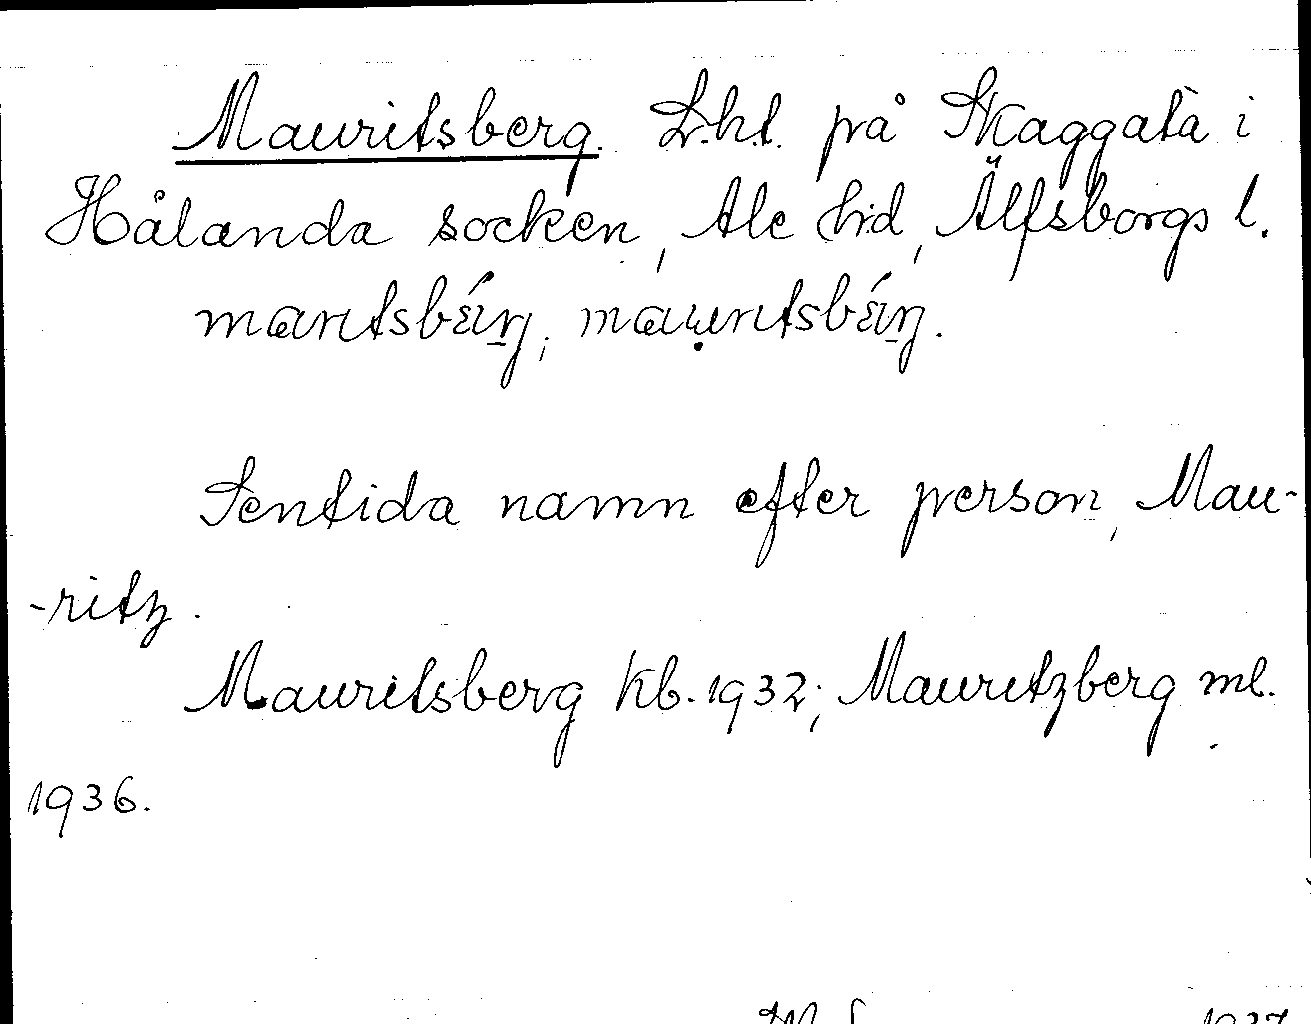 Mauritsberg. L.h.t. på Skaggatà i
Hålanda socken, Ale hd, Älfsborgs l.
marıtsbǽrı̠ŋ; mau̯rıtsbǽrı̠ŋ.
Sentida namn efter person, Mau-
-ritz.
Mauritsberg kb. 1932; Mauritzberg ml.
1936.